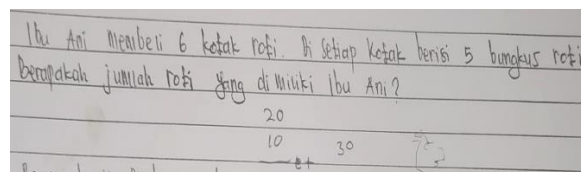 Ibu Ani membeli 6 kotak roti. Di setiap kotak berisi 5 bungkus roti
berapakah jumlah roti yang di miliki ibu Ani?
20
10 30